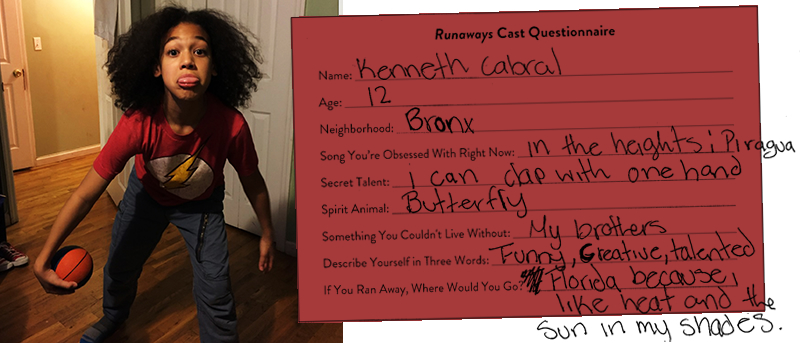 Runaways Cast Questionnaire
Name: Kenneth Cabral
Age: 12
Neighborhood: Bronx
Song You're Obsessed With Right Now: in the heights; Piragua
Secret Talent: i can clap with one hand
Spirit Animal: Butterfly
Something You Couldn't Live Without: My brothers
Describe Yourself in Three Words: Funny, Creative, talented
If You Ran Away, Where Would You Go? Florida because i
like heat and the
sun in my shades.